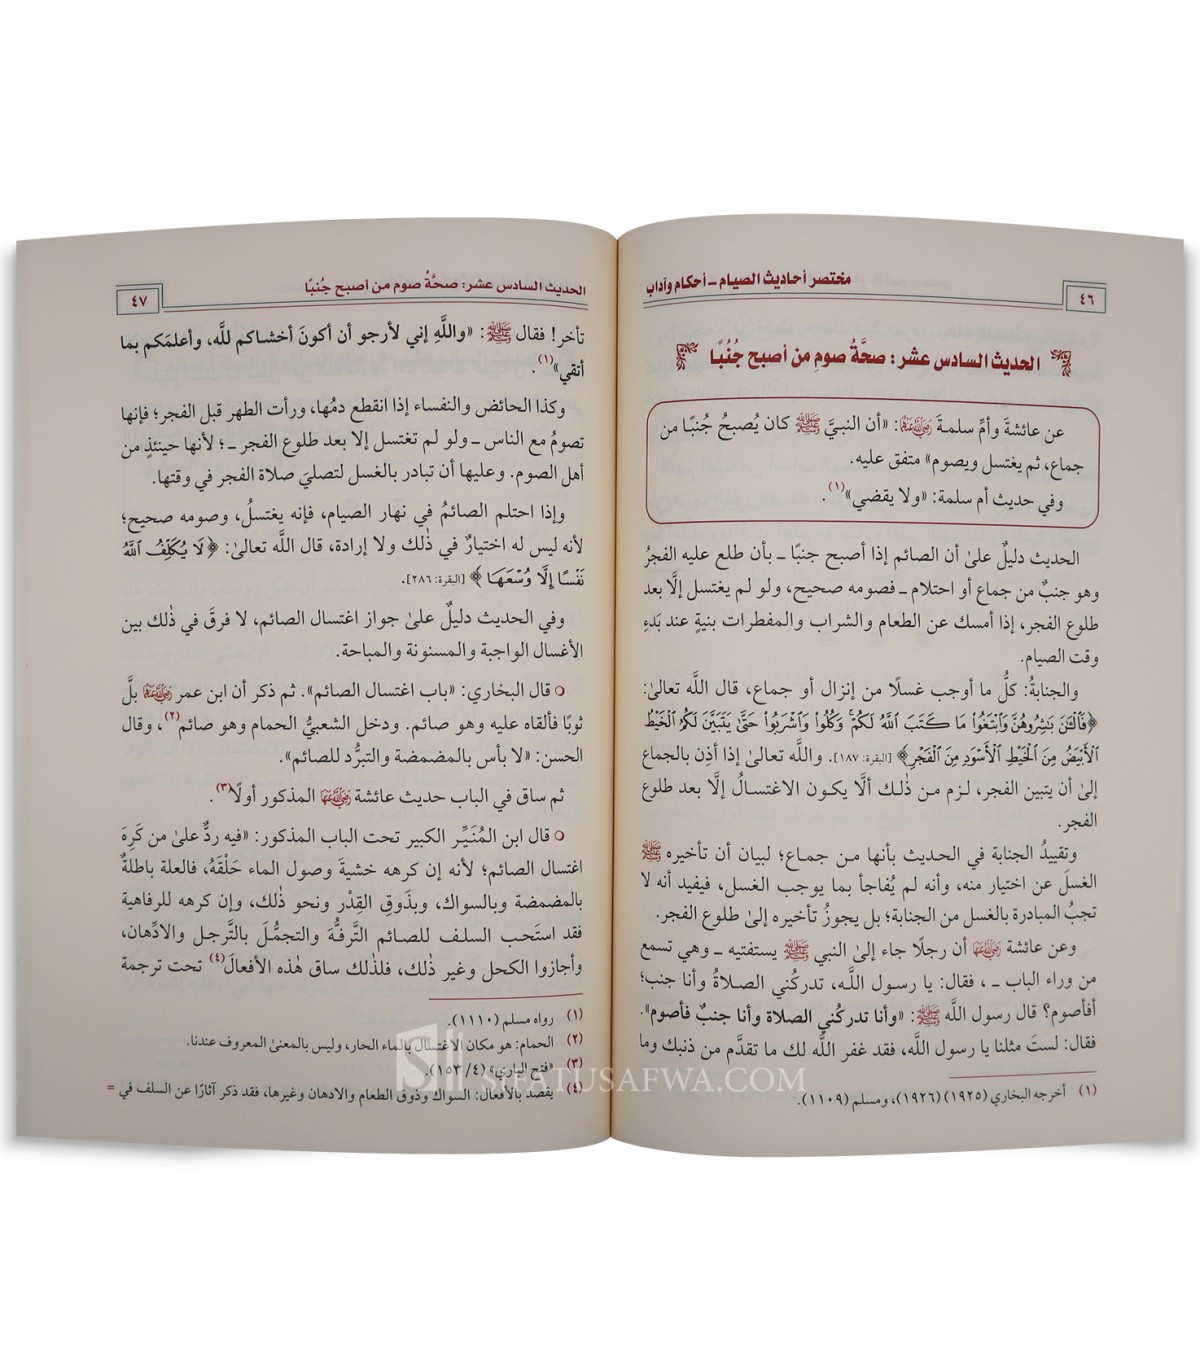 مختصر أحاديث الصيام ــ أحكام وآداب
٤٦
الحديث السادس عشر: صحَّةُ صومِ من أصبح جُنُبًا
عن عائشةَ وأمِّ سلمةَ رضي الله عنهما: «أن النبيَّ ﷺ كان يُصبحُ جُنبًا من
جماع، ثم يغتسل ويصوم» متفق عليه.
وفي حديث أم سلمة: «ولا يقضي»(١).
الحديث دليلٌ علىٰ أن الصائم إذا أصبح جنبًا ــ بأن طلع عليه الفجرُ
وهو جنبٌ من جماع أو احتلام ــ فصومه صحيح، ولو لم يغتسل إلَّا بعد
طلوع الفجر، إذا أمسك عن الطعام والشراب والمفطرات بنيةٍ عند بَدءِ
وقت الصيام.
والجنابةُ: كلُّ ما أوجب غسلًا من إنزال أو جماع، قال اللَّه تعالىٰ:
﴿فَٱلْـَٰٔنَ بَٰشِرُوهُنَّ وَٱبْتَغُوا۟ مَا كَتَبَ ٱللَّهُ لَكُمْ ۚ وَكُلُوا۟ وَٱشْرَبُوا۟ حَتَّىٰ يَتَبَيَّنَ لَكُمُ ٱلْخَيْطُ
ٱلْأَبْيَضُ مِنَ ٱلْخَيْطِ ٱلْأَسْوَدِ مِنَ ٱلْفَجْرِ﴾ [البقرة: ١٨٧]. واللَّه تعالىٰ إذا أذِن بالجماع
إلىٰ أن يتبين الفجر، لزم من ذٰلك ألَّا يكون الاغتسالُ إلَّا بعد طلوع
الفجر.
وتقييدُ الجنابة في الحديث بأنها من جماع؛ لبيان أن تأخيره ﷺ
الغسلَ عن اختيار منه، وأنه لم يُفاجأ بما يوجب الغسل، فيفيد أنه لا
تجبُ المبادرة بالغسل من الجنابة؛ بل يجوزُ تأخيره إلىٰ طلوع الفجر.
وعن عائشة رضي الله عنها أن رجلًا جاء إلىٰ النبي ﷺ يستفتيه ــ وهي تسمع
من وراء الباب ــ ، فقال: يا رسول اللَّه، تدركُني الصلاةُ وأنا جنب؛
أفأصوم؟ قال رسول اللَّه ﷺ: «وأنا تدركُني الصلاة وأنا جنبٌ فأصوم».
فقال: لستَ مثلنا يا رسول اللَّه، فقد غفر اللَّه لك ما تقدَّم من ذنبك وما
(١) أخرجه البخاري (١٩٢٥) (١٩٢٦)، ومسلم (١١٠٩).
الحديث السادس عشر: صحَّةُ صوم من أصبح جُنبًا
٤٧
تأخر! فقال ﷺ: «واللَّهِ إني لأرجو أن أكونَ أخشاكم للَّه، وأعلمَكم بما
أتقي»(١).
وكذا الحائض والنفساء إذا انقطع دمُها، ورأت الطهر قبل الفجر؛ فإنها
تصومُ مع الناس ــ ولو لم تغتسل إلا بعد طلوع الفجر ــ؛ لأنها حينئذٍ من
أهل الصوم. وعليها أن تبادر بالغسل لتصليَ صلاة الفجر في وقتها.
وإذا احتلم الصائمُ في نهار الصيام، فإنه يغتسلُ، وصومه صحيح؛
لأنه ليس له اختيارٌ في ذٰلك ولا إرادة، قال اللَّه تعالىٰ: ﴿لَا يُكَلِّفُ ٱللَّهُ
نَفْسًا إِلَّا وُسْعَهَا﴾ [البقرة: ٢٨٦].
وفي الحديث دليلٌ علىٰ جواز اغتسال الصائم، لا فرقَ في ذٰلك بين
الأغسال الواجبة والمسنونة والمباحة.
○ قال البخاري: «باب اغتسال الصائم». ثم ذكر أن ابن عمر رضي الله عنهما بلَّ
ثوبًا فألقاه عليه وهو صائم. ودخل الشعبيُّ الحمام وهو صائم(٢)، وقال
الحسن: «لا بأس بالمضمضة والتبرُّد للصائم».
ثم ساق في الباب حديث عائشة رضي الله عنها المذكور أولًا(٣).
○ قال ابن المُنَيِّر الكبير تحت الباب المذكور: «فيه ردٌّ علىٰ من كَرِهَ
اغتسال الصائم؛ لأنه إن كرهه خشيةَ وصول الماء حَلْقَهُ، فالعلة باطلةٌ
بالمضمضة وبالسواك، وبذَوقِ القِدْر ونحو ذٰلك، وإن كرهه للرفاهية
فقد استَحب السلف للصائم التَّرفُّهَ والتجمُّلَ بالتَّرجل والادِّهان،
وأجازوا الكحل وغير ذٰلك، فلذٰلك ساق هٰذه الأفعالَ(٤) تحت ترجمة
(١) رواه مسلم (١١١٠).
(٢) الحمام: هو مكان الاغتسال بالماء الحار، وليس بالمعنىٰ المعروف عندنا.
(٣) «فتح الباري» (٤/ ١٥٣).
(٤) يقصد بالأفعال: السواك وذوق الطعام والادهان وغيرها، فقد ذكر آثارًا عن السلف في =
SIFATUSAFWA.COM